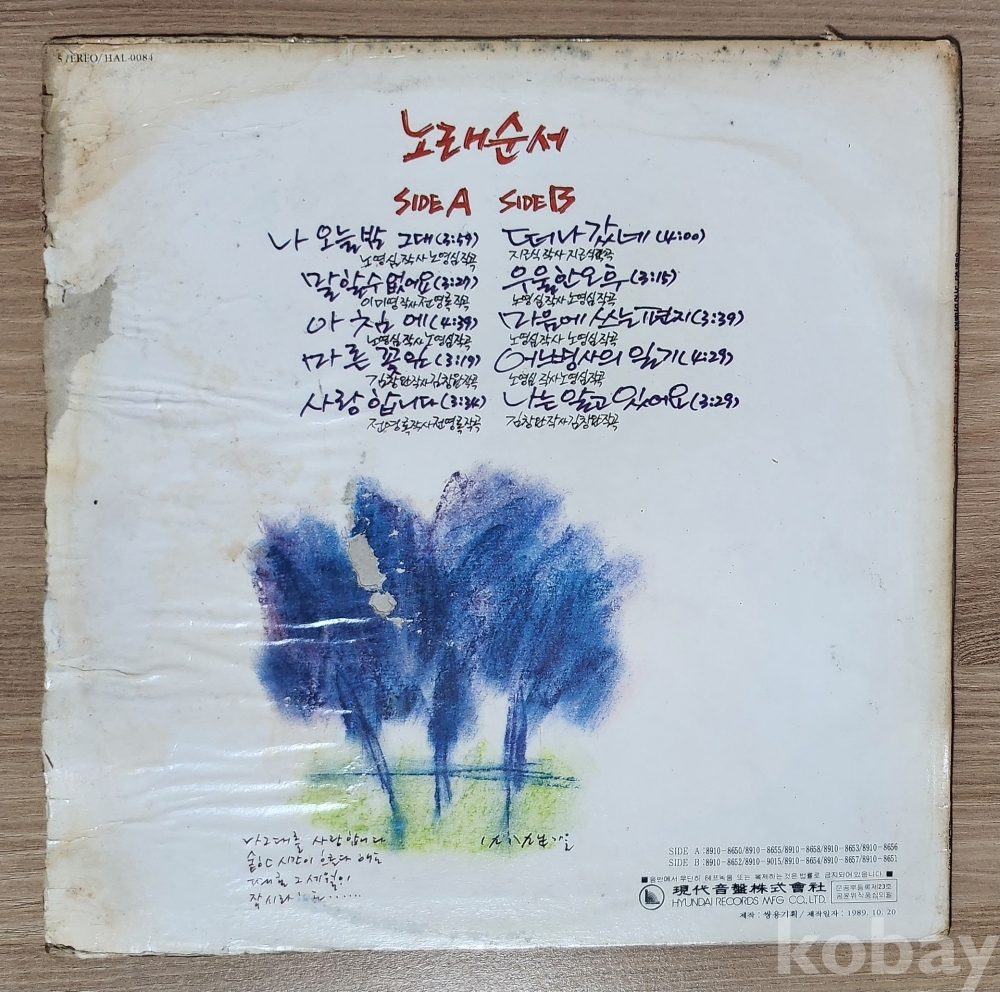 STEREO/HAL-0084
노래순서
SIDE A
나 오늘밤 그대(3:59)
노영심 작사 노영심 작곡
말할 수 없어요(3:27)
이미영 작사 전영록 작곡
아침에(4:39)
노영심 작사 노영심 작곡
마른 꽃잎(3:19)
김창완 작사 김창완 작곡
사랑합니다(3:34)
전영록 작사 전영록 작곡
SIDE B
떠나갔네(4:00)
지근식 작사 지근식 작곡
우울한 오후(3:15)
노영심 작사 노영심 작곡
마음에 쓰는 편지(3:39)
노영심 작사 노영심 작곡
어느 병사의 일기(4:29)
노영심 작사 노영심 작곡
나는 알고 있어요(3:29)
김창완 작사 김창완 작곡
나 그대를 사랑합니다
숱한 시간이 흐른다 해도
그 세월이
SIDE A :8910-8650/8910-8655/8910-8658/8910-8653/8910-8656
SIDE B :8910-8652/8910-9015/8910-8654/8910-8657/8910-8651
■음반에서 무단히 테프녹음 또는 복제하는것은 법률로 금지되어 있읍니다.■
現代音盤株式會社
HYUNDAI RECORDS MFG CO., LTD.
문공부등록제23호
공윤위식품심의필
제작 : 쌍용기획 / 제작일자 : 1989. 10. 20
kobay